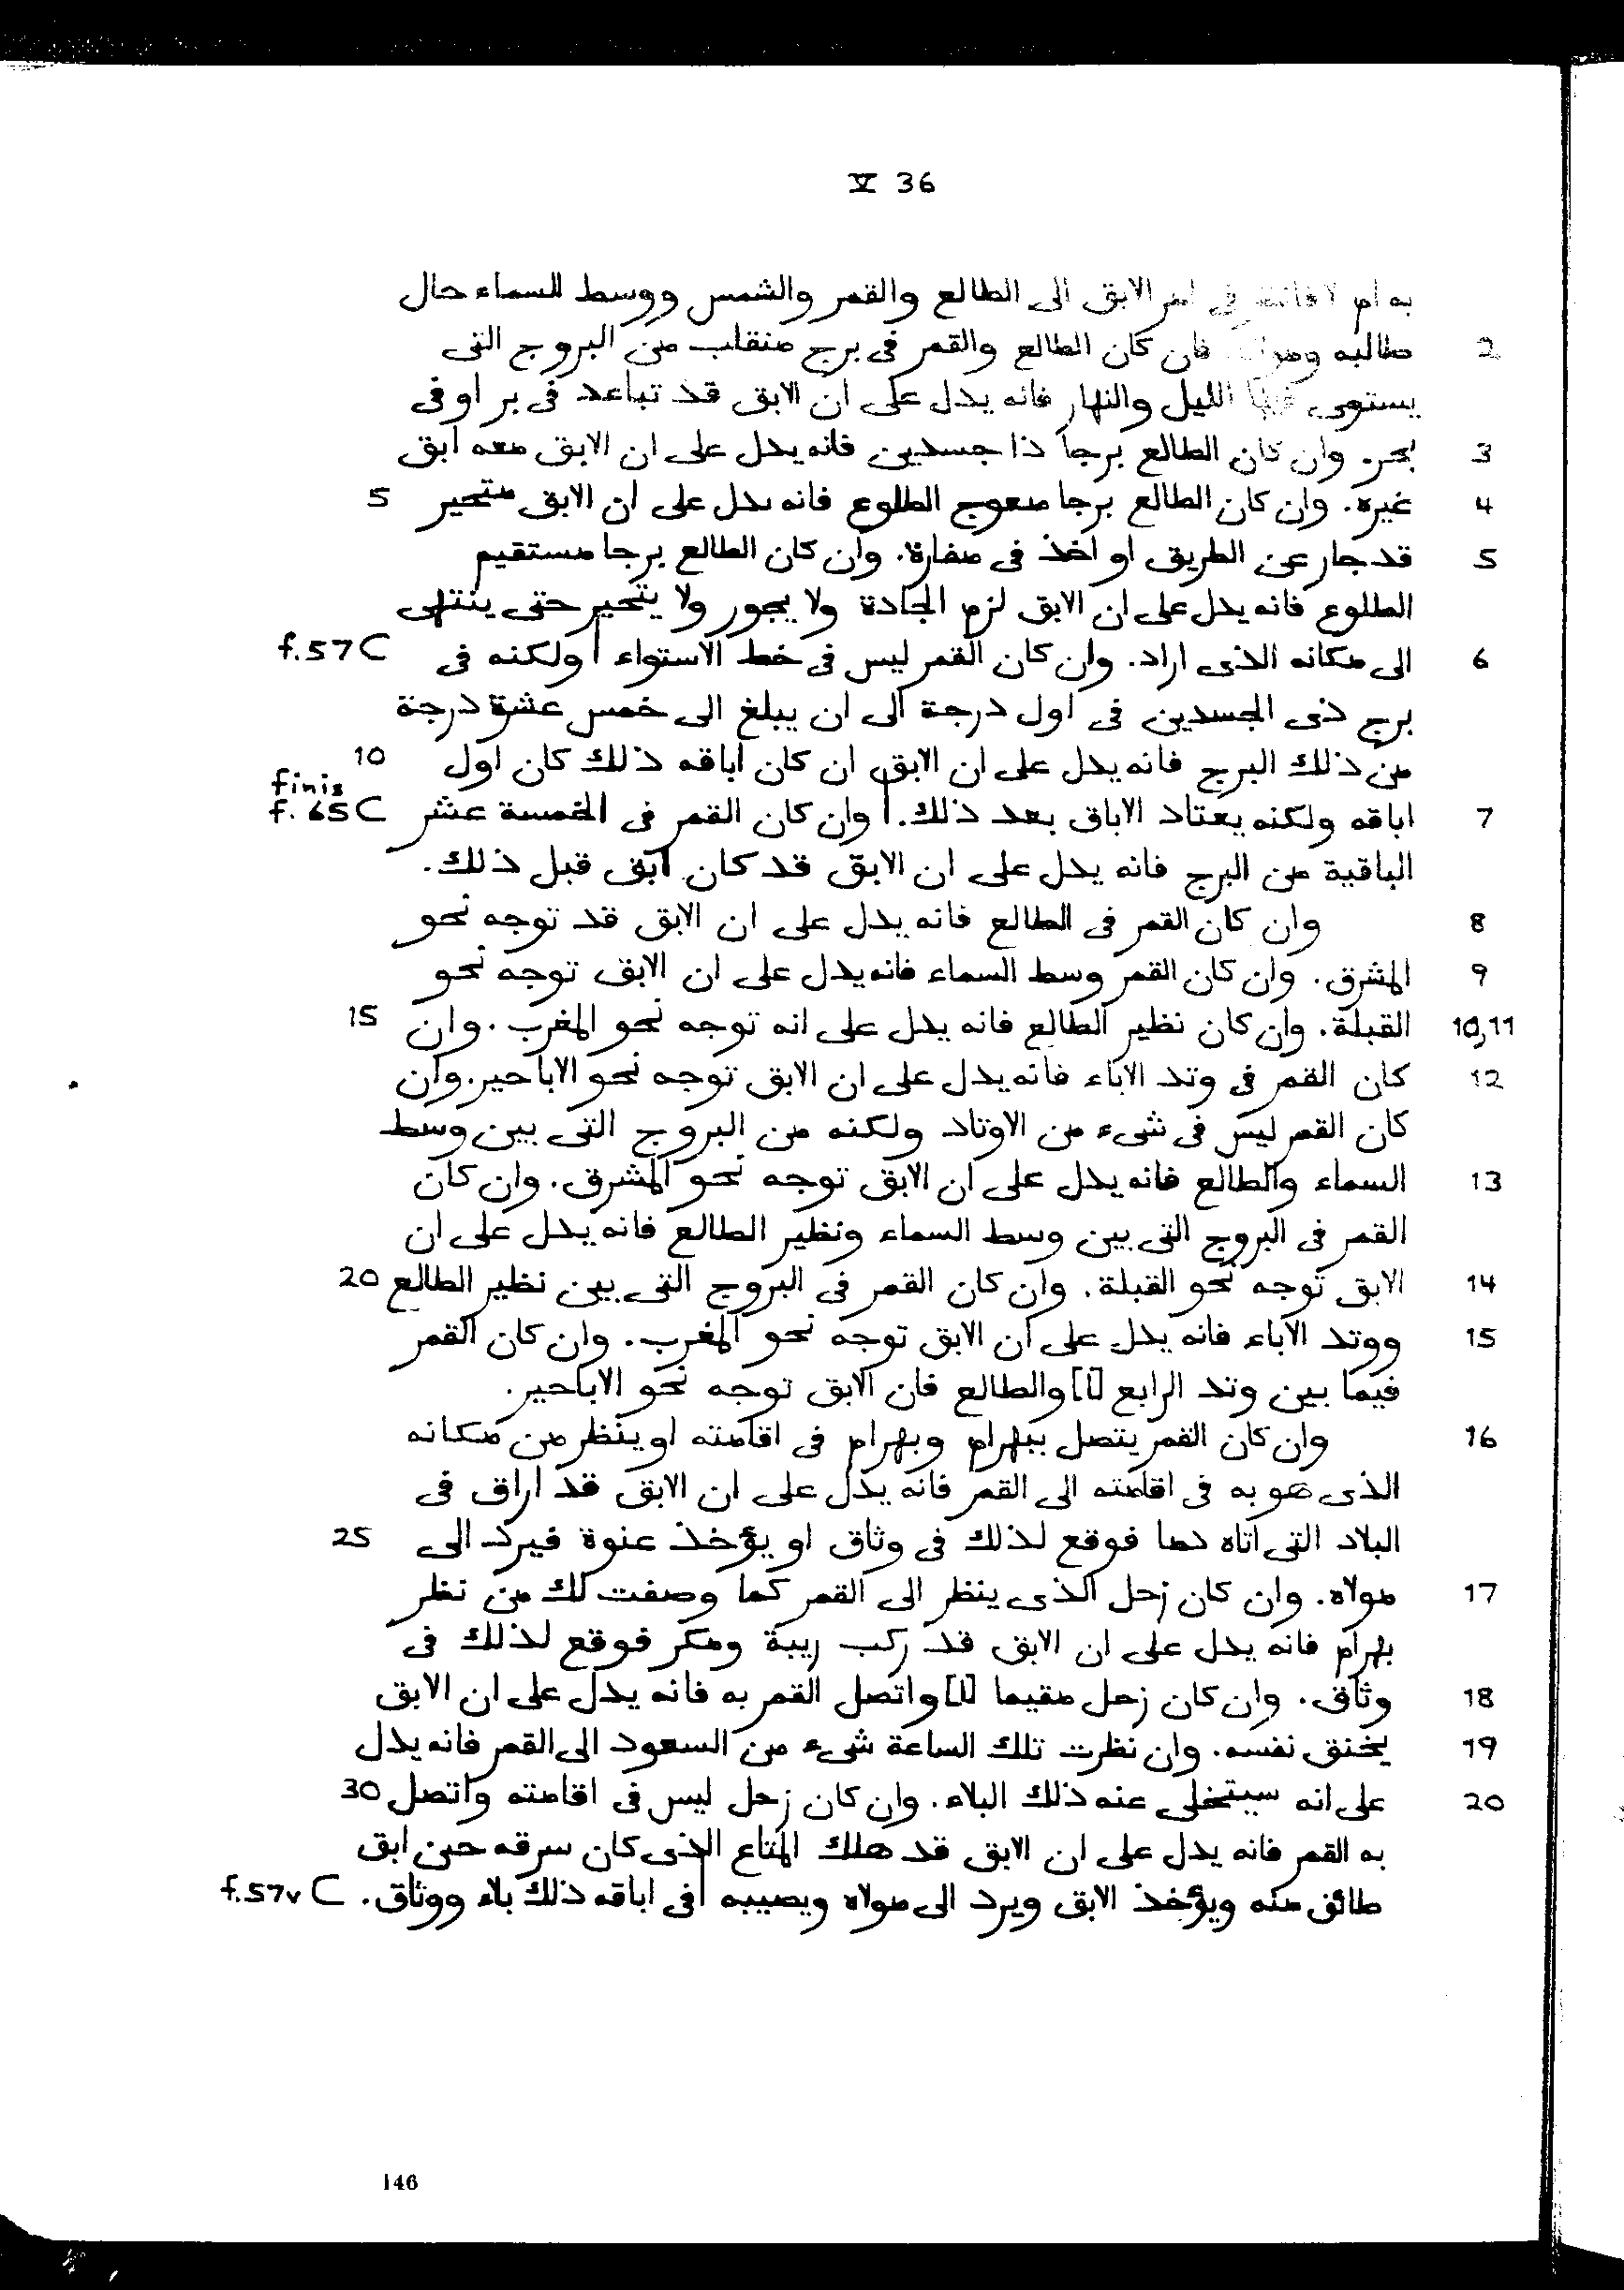 V 36
به ام لا فانظر فى امر الابق الى الطالع والقمر والشمس ووسط السماء حال
2 طالبه فان كان الطالع والقمر فى برج منقلب من البروج التى
يستوى الليل والنهار فانه يدل على ان الابق قد تباعد فى بر او فى
3 بحر. وان كان الطالع برجا ذا جسدين فانه يدل على ان الابق معه ابق
4 غيره. وان كان الطالع برجا معوج الطلوع فانه يدل على ان الابق متحير 5
5 قد جار عن الطريق او اخذ فى مفازة. وان كان الطالع برجا مستقيم
الطلوع فانه يدل على ان الابق لزم الجادة ولا يجور ولا يتحير حتى ينتهى
6 الى مكانه الذى اراد. وان كان القمر ليس فى خط الاستواء | ولكنه فى f.57 C
برج ذى الجسدين فى اول درجة الى ان يبلغ الى خمس عشرة درجة
من ذلك البرج فانه يدل على ان الابق ان كان اباقه ذلك كان اول 10
7 اباقه ولكنه يعتاد الاباق بعد ذلك. | وان كان القمر فى الخمسة عشر finis f. 65 C
الباقية من البرج فانه يدل على ان الابق قد كان ابق قبل ذلك.
8 وان كان القمر فى الطالع فانه يدل على ان الابق قد توجه نحو
9 المشرق. وان كان القمر وسط السماء فانه يدل على ان الابق توجه نحو
10,11 القبلة. وان كان نظير الطالع فانه يدل على انه توجه نحو المغرب. وان 15
12 كان القمر فى وتد الاباء فانه يدل على ان الابق توجه نحو الاباحير. وان
كان القمر ليس فى شىء من الاوتاد ولكنه من البروج التى بين وسط
13 السماء والطالع فانه يدل على ان الابق توجه نحو المشرق. وان كان
القمر فى البروج التى بين وسط السماء ونظير الطالع فانه يدل على ان
14 الابق توجه نحو القبلة. وان كان القمر فى البروج التى بين نظير الطالع 20
15 ووتد الاباء فانه يدل على ان الابق توجه نحو المغرب. وان كان القمر
فيما بين وتد الرابع [ا] والطالع فان الابق توجه نحو الاباحير.
16 وان كان القمر يتصل ببهرام وبهرام فى اقامته او ينظر من مكانه
الذى هو به فى اقامته الى القمر فانه يدل على ان الابق قد اراق فى
البلاد التى اتاه دما فوقع لذلك فى وثاق او يؤخذ عنوة فيرد الى 25
17 مولاه. وان كان زحل الذى ينظر الى القمر كما وصفت لك من نظر
بهرام فانه يدل على ان الابق قد ركب ريبة ومكر فوقع لذلك فى
18 وثاق. وان كان زحل مقيما [ا] واتصل القمر به فانه يدل على ان الابق
19 يخنق نفسه. وان نظرت تلك الساعة شىء من السعود الى القمر فانه يدل
20 على انه سيتخلى عنه ذلك البلاء. وان كان زحل ليس فى اقامته واتصل 30
به القمر فانه يدل على ان الابق قد هلك المتاع الذى كان سرقه حين ابق
طائق منه ويؤخذ الابق ويرد الى مولاه ويصيبه | فى اباقه ذلك بلاء ووثاق. f.57v C
146